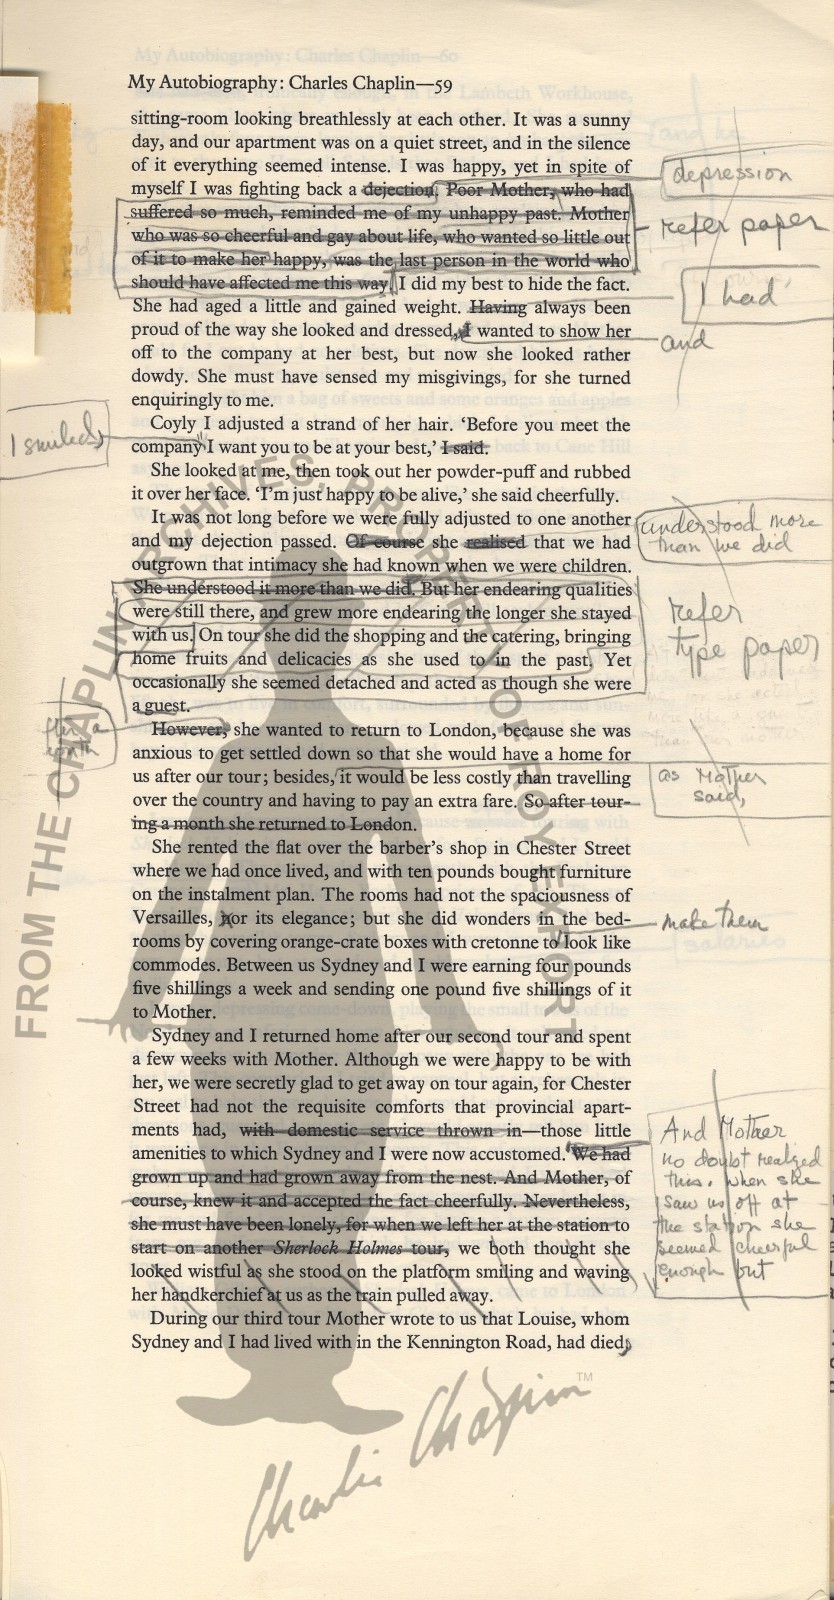 My Autobiography: Charles Chaplin—60
My Autobiography: Charles Chaplin—59
sitting-room looking breathlessly at each other. It was a sunny
day, and our apartment was on a quiet street, and in the silence
of it everything seemed intense. I was happy, yet in spite of
myself I was fighting back a dejection. Poor Mother, who had
depression
suffered so much, reminded me of my unhappy past. Mother
refer paper
who was so cheerful and gay about life, who wanted so little out
of it to make her happy, was the last person in the world who
should have affected me this way. I did my best to hide the fact.
I had
She had aged a little and gained weight. Having always been
proud of the way she looked and dressed, I wanted to show her
and
off to the company at her best, but now she looked rather
dowdy. She must have sensed my misgivings, for she turned
enquiringly to me.
Coyly I adjusted a strand of her hair. ‘Before you meet the
I smiled,
company I want you to be at your best,’ I said.
She looked at me, then took out her powder-puff and rubbed
it over her face. ‘I’m just happy to be alive,’ she said cheerfully.
It was not long before we were fully adjusted to one another
understood more
than we did
and my dejection passed. Of course she realised that we had
outgrown that intimacy she had known when we were children.
She understood it more than we did. But her endearing qualities
were still there, and grew more endearing the longer she stayed
refer
type paper
with us. On tour she did the shopping and the catering, bringing
home fruits and delicacies as she used to in the past, Yet
occasionally she seemed detached and acted as though she were
a guest.
However, she wanted to return to London, because she was
after a
month
anxious to get settled down so that she would have a home for
us after our tour; besides, it would be less costly than travelling
as Mother
said,
over the country and having to pay an extra fare. So after tour-
ing a month she returned to London.
She rented the flat over the barber’s shop in Chester Street
where we had once lived, and with ten pounds bought furniture
on the instalment plan. The rooms had not the spaciousness of
Versailles, nor its elegance; but she did wonders in the bed-
make them
rooms by covering orange-crate boxes with cretonne to look like
commodes. Between us Sydney and I were earning four pounds
five shillings a week and sending one pound five shillings of it
to Mother.
Sydney and I returned home after our second tour and spent
a few weeks with Mother. Although we were happy to be with
her, we were secretly glad to get away on tour again, for Chester
Street had not the requisite comforts that provincial apart-
ments had, with domestic service thrown in—those little
amenities to which Sydney and I were now accustomed. We had
And Mother
no doubt realized
this. when she
saw us off at
the station she
seemed cheerful
enough but
grown up and had grown away from the nest. And Mother, of
course, knew it and accepted the fact cheerfully. Nevertheless,
she must have been lonely, for when we left her at the station to
start on another Sherlock Holmes tour, we both thought she
looked wistful as she stood on the platform smiling and waving
her handkerchief at us as the train pulled away.
During our third tour Mother wrote to us that Louise, whom
Sydney and I had lived with in the Kennington Road, had died,
FROM THE CHAPLIN ARCHIVES, PROPERTY OF ROY EXPORT
Charlie Chaplin™